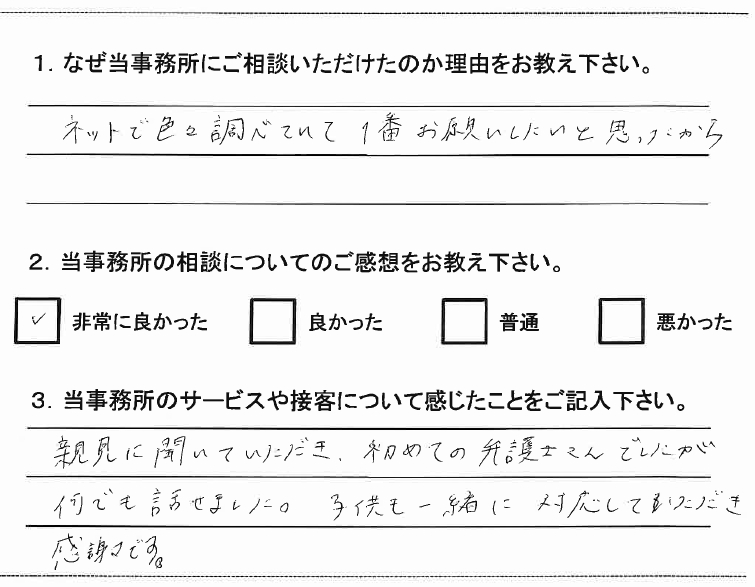 1. なぜ当事務所にご相談いただけたのか理由をお教え下さい。
ネットで色々調べていて 1番 お願いしたいと思ったから
2. 当事務所の相談についてのご感想をお教え下さい。
✓ 非常に良かった 良かった 普通 悪かった
3. 当事務所のサービスや接客について感じたことをご記入下さい。
親見に聞いていただき、初めての弁護士さんでしたが
何でも話せました。子供も一緒に対応していただき
感謝です。